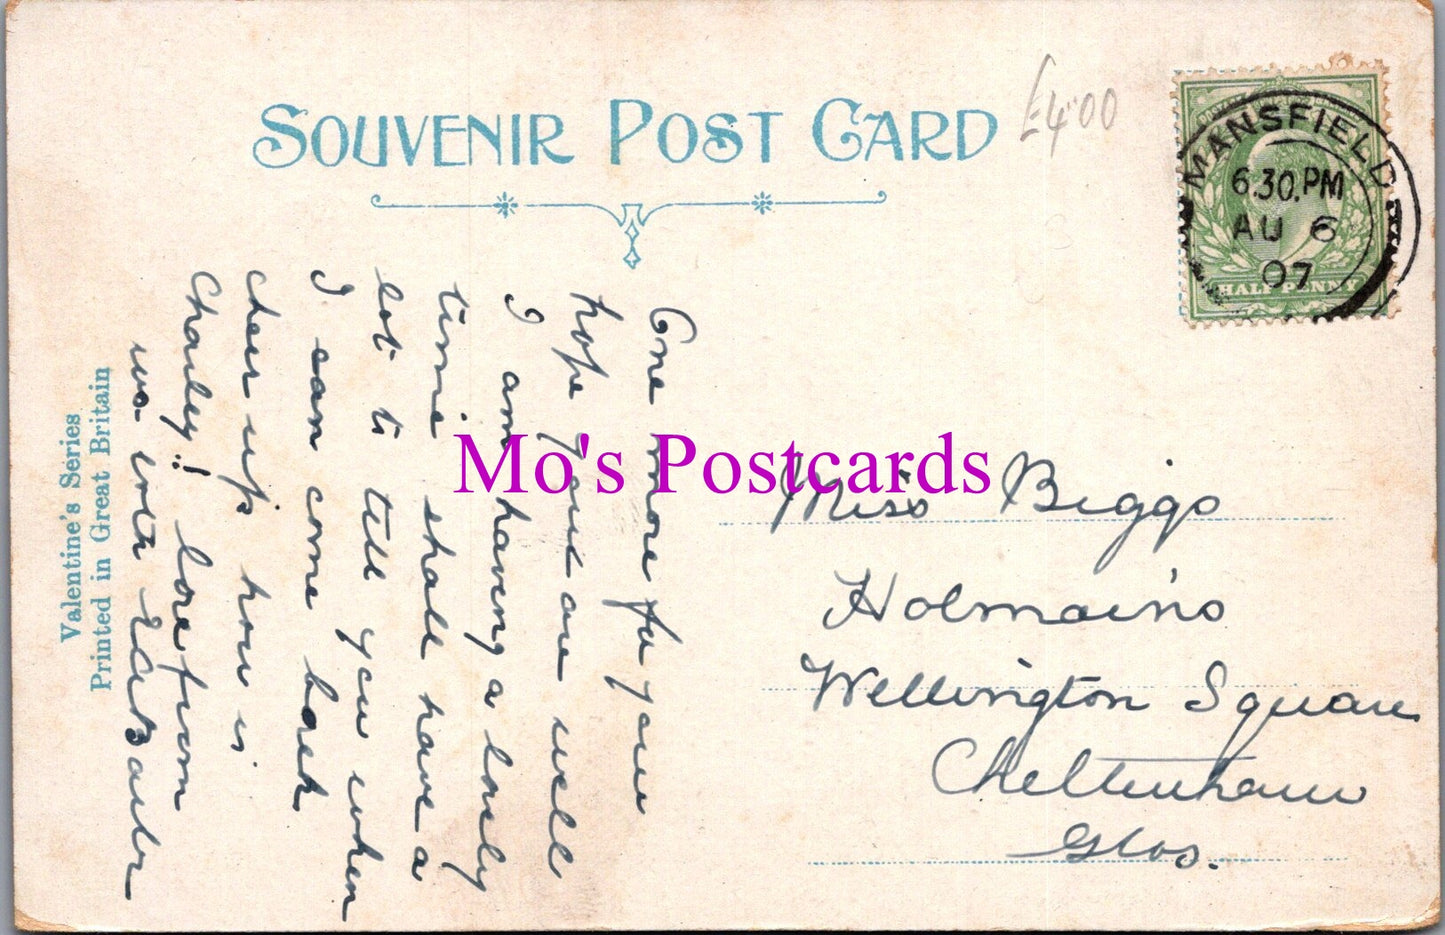 SOUVENIR POST CARD
£4.00
MANSFIELD
6.30.PM
AU 6
07
HALF PENNY
One more for you
hope you are well
I am having a lovely
time shall have a
lot to tell you when
I can come back
cheer up how is
Charley! love from
Valentine's Series
Printed in Great Britain
Mo's Postcards
Miss Biggs
Holmains
Wellington Square
Cheltenham
Glos.